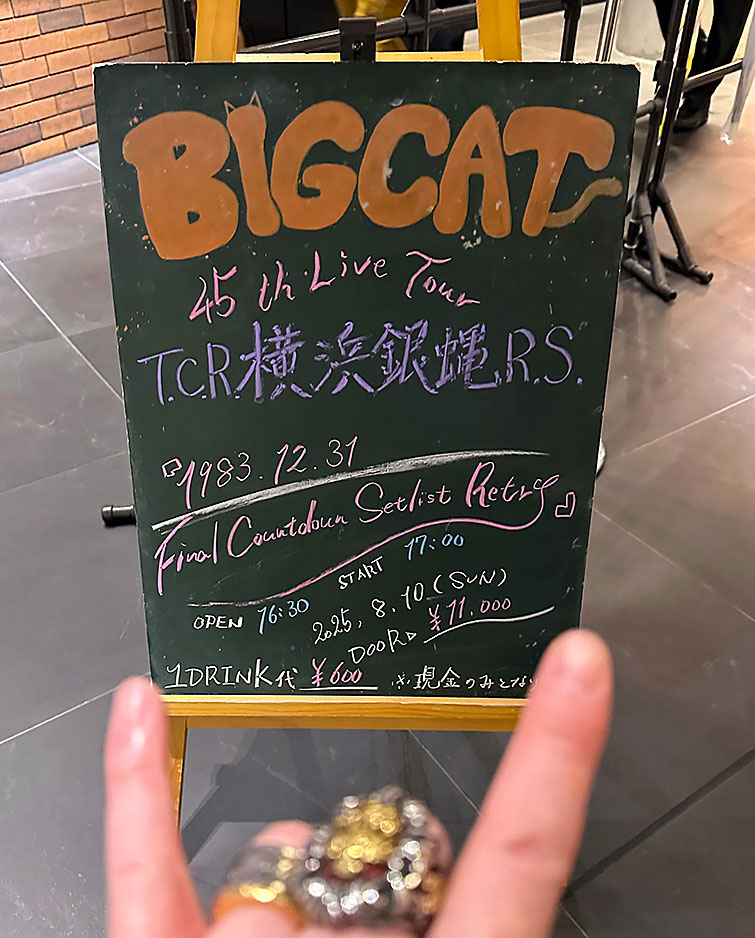 BIGCAT
45th Live Tour
T.C.R.横浜銀蝿R.S.
『1983.12.31
Final Countdown Setlist Retry』
OPEN 16:30 START 17:00
2025.8.10(SUN)
DOOR▷ ¥11.000
1DRINK代 ¥600 ※現金のみとな